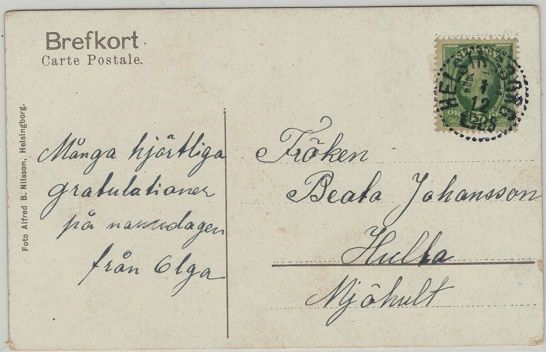 Brefkort
Carte Postale.
Foto Alfred B. Nilsson, Helsingborg.
Många hjärtliga
gratulationer
på namnsdagen
från Olga
Fröken
Beata Johansson
Hulta
Mjöhult
HELSINGBORG
1
12